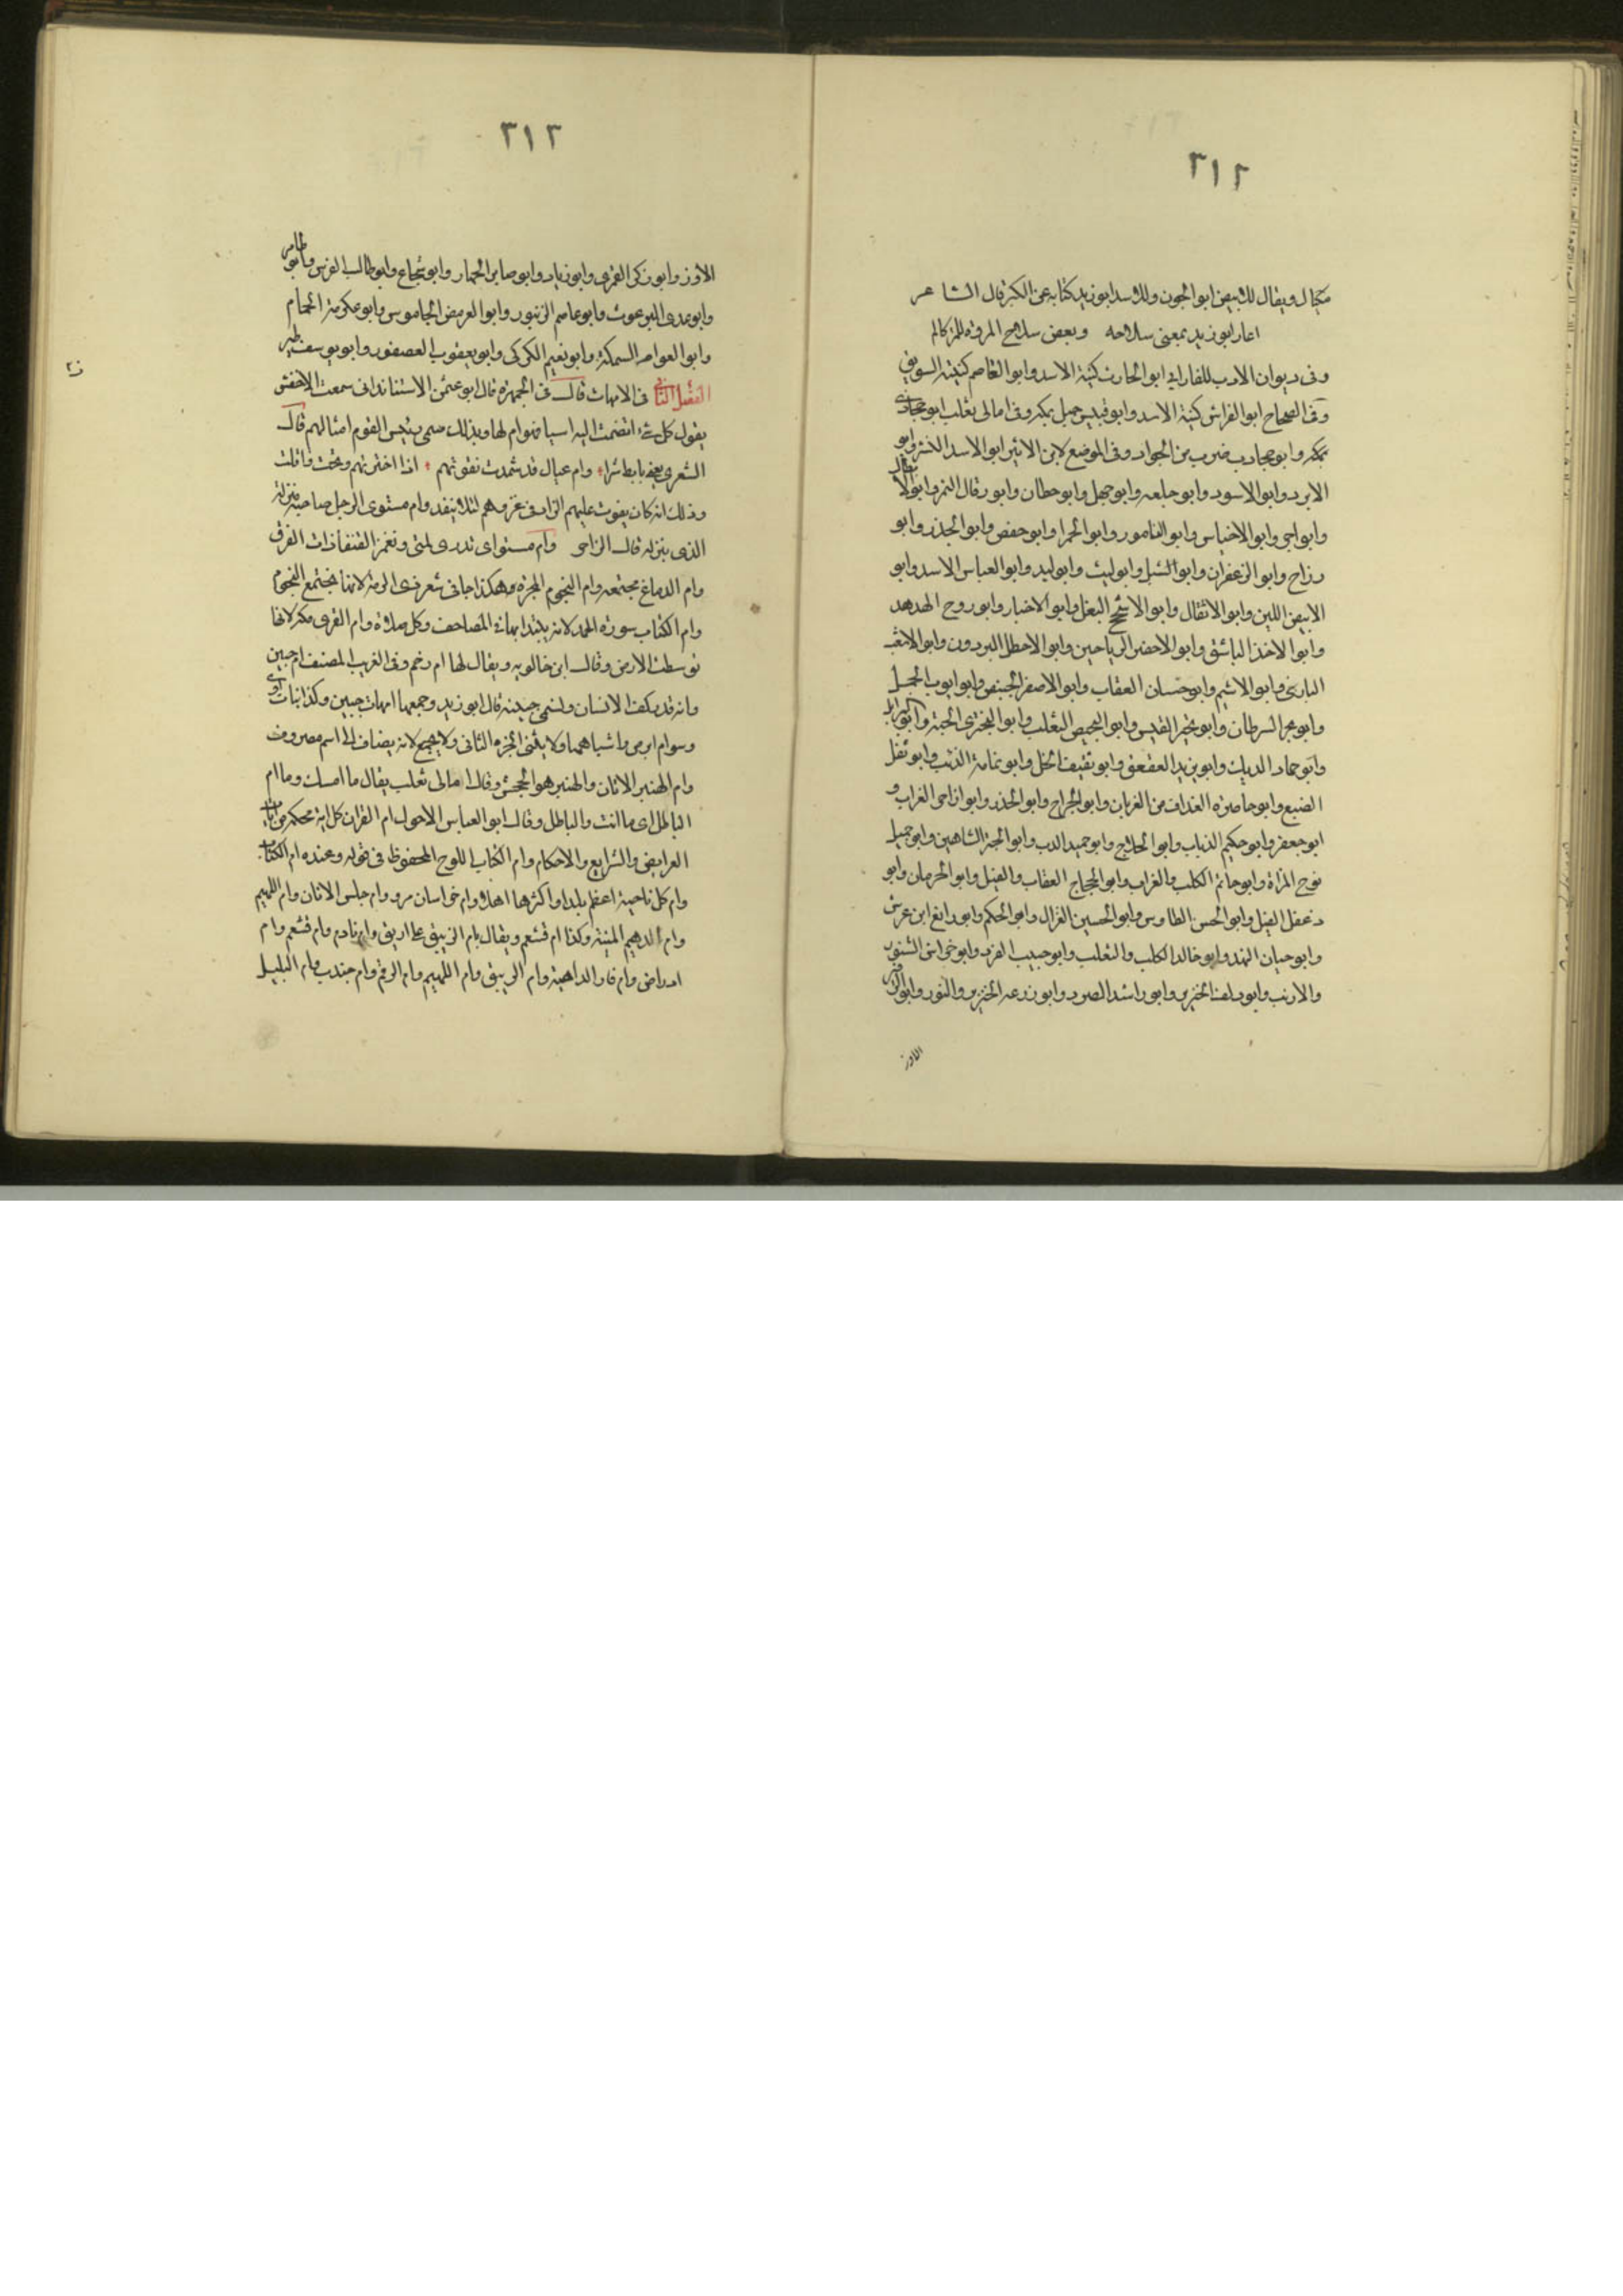 ٣١٢
مكيال ويقال للابيض ابوالجون وللاسد ابوزيد كناية عن الكبر قال الشاعر
اعار ابوزيد بمعنى سلاحه وبعض سلاح المروة للمرء كالم
وفى ديوان الادب للفارابي ابو الحارث كنية الاسد وابو القاصم كنية السويق
وفى الصحاح ابو الفراش كنية الاسد وابو قبيس جبل بمكة وفى امالى ثعلب ابو
بمكة وابو جحادب ضرب من الجراد وفى الموضع لابن الاثير ابو الاسد النسر وابو
الابرد وابو الاسود وابو جلعد وابو جهل وابو حطان وابو رقال النمر وابو
وابو الاخياس وابو التامور وابو الحمرا وابو حفص وابو الحذر وابو
رزاح وابو الزعفران وابو الشبل وابو ليث وابو لبد وابو العباس الاسد وابو
الابيض اللبن وابو الاثقال وابو الاشحج البغل وابو الاخبار وابو روح الهدهد
وابو الاخذ الباشق وابو الاخضر الرياحين وابو الاخطل البردون وابو الاشعث
البازى وابو الاشيم وابو حسان العقاب وابو الاصفر الخبيص وابو ايوب الجمل
وابو بحر السرطان وابو بحير التيس وابو الحصين الثعلب وابو البخترى الحية وابو
وابو حماد الديك وابو يزيد العقعق وابو ثقيف الخل وابو ثمامة الذئب وابو ثقل
الضبع وابو حاضرة الغداف من الغربان وابو الجراح وابو الحذر وابو زاجر الغراب و
ابو جعفر وابو حكيم الذباب وابو الحلاج وابو حميد الدب وابو الحجر الشاهين وابو جميل
فرج المراة وابو حاتم الكلب والغراب وابو الحجاج العقاب والفيل وابو الحرمان وابو
دغفل الفيل وابو الحسن الطاوس وابو الحسين الغزال وابو الحكم وابو رافع ابن عرس
وابو حيان الفهد وابو خالد الكلب والثعلب وابو حبيب القرد وابو خراش السنور
والارنب وابو دلف الخنزير وابو راشد الصرد وابو زرعه الخنزير والثور وابو
الاوز
٣١٣
الاوز وابو زكرى القمرى وابو زياد وابو صابر الحمار وابو شجاع وابو طالب الفرس وابو طامر
وابو عدى البرغوث وابو عاصم الزنبور وابو العرمض الجاموس وابو عكرمة الحمام
وابو العوام السمكة وابو نعيم الكركى وابو يعقوب العصفور وابو يوسف طير
الفصل الثانى فى الامهات قال فى الجمهرة قال ابو عثمن الاشنانداني سمعت الاخفش
يقول كل شئ انضمت اليه اشيا فهو ام لها وبذلك سمى رئيس القوم اما لهم قال
الشعرى يعنى تابط شرا وام عيال قد شهدت تقوتهم اذا اخترتهم وتحت واقلت
وذلك انه كان يقوت عليهم الزاد فى غزوهم لئلا ينفد وام مثوى الرجل صاحبة منزله
الذى ينزله قال الراجز وام مثواى تدرى لمتى وتغمز القنفاء ذات الفرق
وام الدماغ مجتمعه وام النجوم المجرة وهكذا جا فى شعر ذى الرمة لانها مجتمع النجوم
وام الكتاب سورة الحمد لانه يبتدا بها فى المصاحف وكل صلاة وام القرى مكة لانها
توسطت الارض وقال ابن خالويه ويقال لها ام رحم وفى الغريب المصنف ام حبين
وانه قد مكفت الانسان ولسمى حبينة قال ابو زيد وجمعها امهات حبين وكذا بنات اوى
وسوام ابرص واشباههما ولا يثنى الجزء الثانى ولا يجمع لانه يضاف الى اسم معروف
وام الهنبر الاتان والهنبر هو الجحش وقال امالى ثعلب يقال ما امك وما ام
الباطل اى ما انت والباطل وقال ابو العباس الاحول ام القران كل اية محكمة من ايات
الفرايض والشرايع والاحكام وام الكتاب اللوح المحفوظ فى قوله وعنده ام الكتاب
وام كل ناحية اعظم بلد واكثرها اهلا وام خراسان مرو وام جلس الاتان وام اللهيم
وام الدهيم المنية وكذا ام قشعم ويقال بام الربيق على اريق وام نادم وام قشعم وام
ادراص وام فار الداهية وام الربيق وام اللهيم وام الرقم وام جندب وام البليل